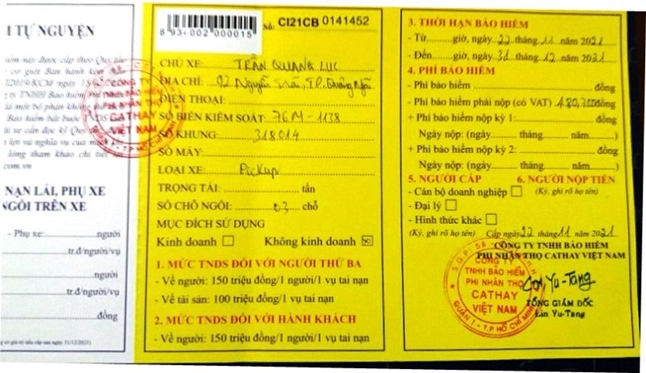 I TỰ NGUYỆN
NẠN LÁI, PHỤ XE
NGỒI TRÊN XE
- Phụ xe: người
tr.đ/người/vụ
người
tr.đ/người/vụ
đồng
8 93-002 000015
Số: CI21CB 0141452
CHỦ XE: TRẦN QUANG LỤC
ĐỊA CHỈ: 92 Nguyễn Trãi, TP. Quảng Ngãi
ĐIỆN THOẠI:
SỐ BIỂN KIỂM SOÁT: 76M - 1138
SỐ KHUNG: 318014
SỐ MÁY:
LOẠI XE: Pickup
TRỌNG TẢI: tấn
SỐ CHỖ NGỒI: 03 chỗ
MỤC ĐÍCH SỬ DỤNG
Kinh doanh Không kinh doanh
1. MỨC TNDS ĐỐI VỚI NGƯỜI THỨ BA
- Về người: 150 triệu đồng/1 người/1 vụ tai nạn
- Về tài sản: 100 triệu đồng/1 vụ tai nạn
2. MỨC TNDS ĐỐI VỚI HÀNH KHÁCH
- Về người: 150 triệu đồng/1 người/1 vụ tai nạn
CÔNG TY
TNHH BẢO HIỂM
PHI NHÂN THỌ
CATHAY
VIỆT NAM
3. THỜI HẠN BẢO HIỂM
- Từ giờ, ngày 22 tháng 11 năm 2021
- Đến giờ, ngày 31 tháng 12 năm 2021
4. PHÍ BẢO HIỂM
- Phí bảo hiểm đồng
- Phí bảo hiểm phải nộp (có VAT) 480,700 đồng
+ Phí bảo hiểm nộp kỳ 1: đồng
Ngày nộp: (ngày tháng năm )
+ Phí bảo hiểm nộp kỳ 2: đồng
Ngày nộp: (ngày tháng năm )
5. NGƯỜI CẤP 6. NGƯỜI NỘP TIỀN
- Cán bộ doanh nghiệp (Ký, ghi rõ họ tên)
- Đại lý
- Hình thức khác
(Ký, ghi rõ họ tên) Cấp ngày 22 tháng 11 năm 2021
CÔNG TY TNHH BẢO HIỂM
PHI NHÂN THỌ CATHAY VIỆT NAM
CÔNG TY
TNHH BẢO HIỂM
PHI NHÂN THỌ
CATHAY
VIỆT NAM
QUẬN 1 - T.P HỒ CHÍ MINH
TỔNG GIÁM ĐỐC
Lin Yu-Tang